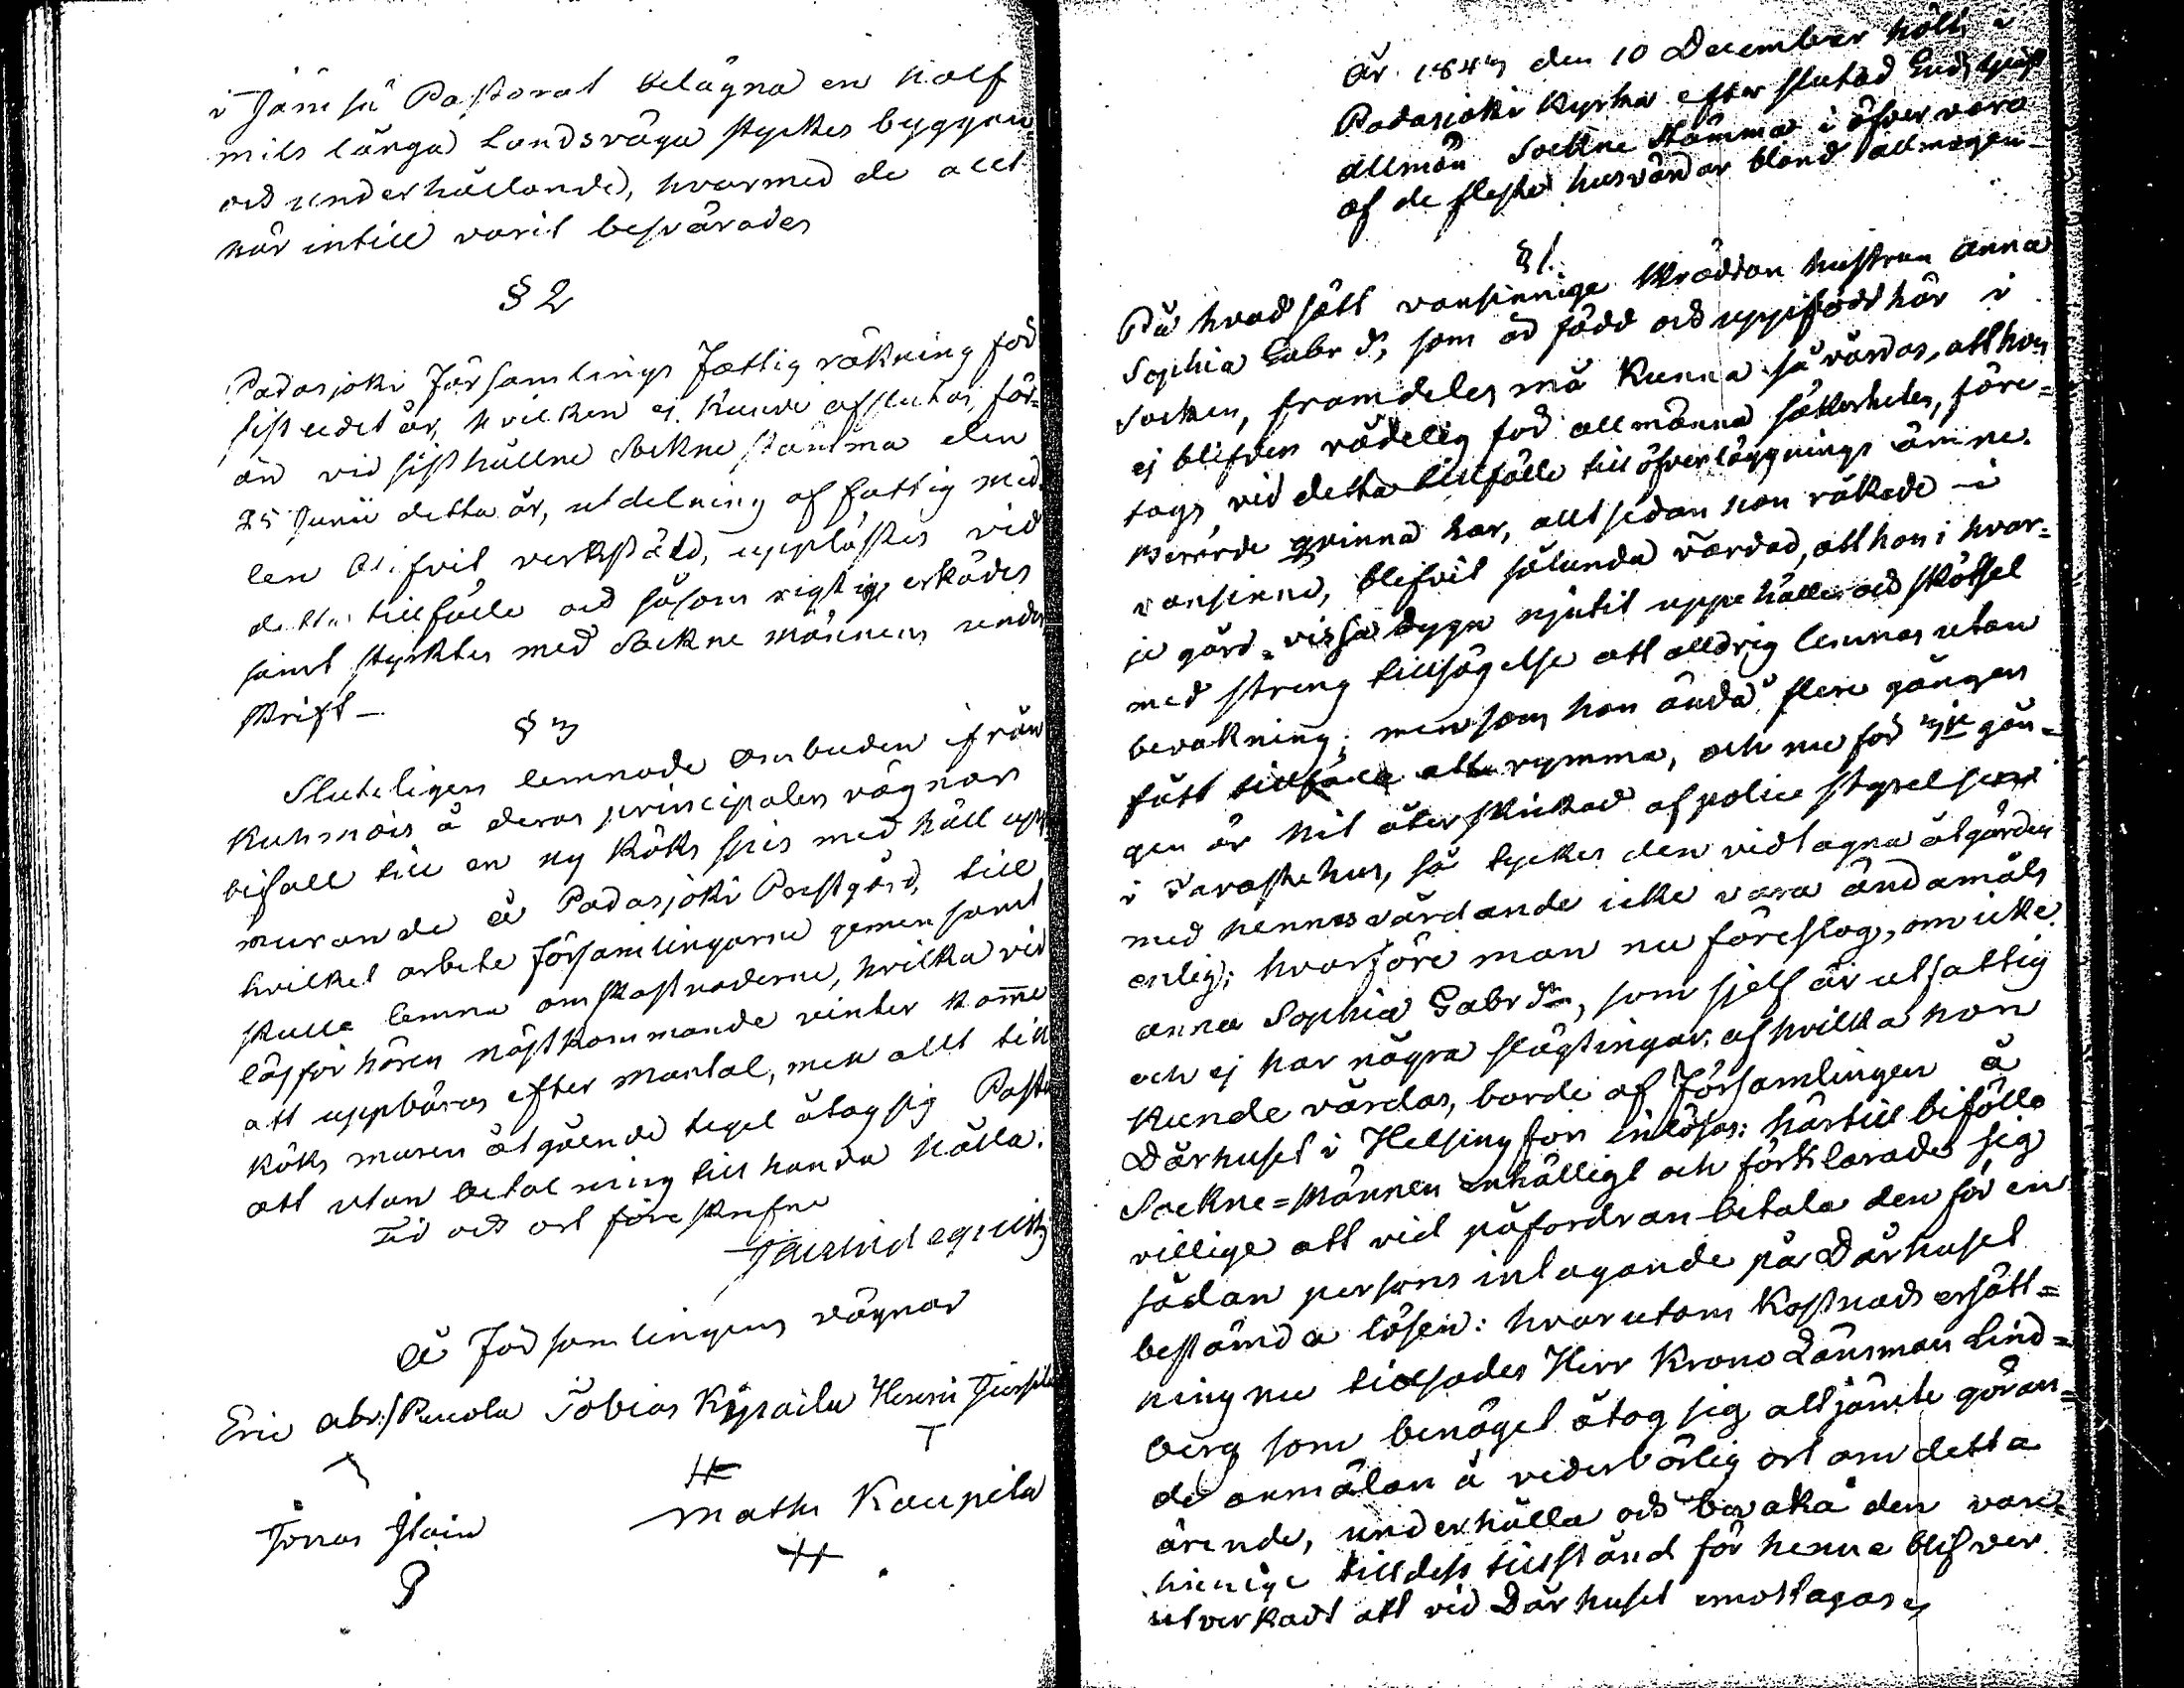 i Jämsä Pastorat belägna en half
mils långa Landsväga styckes byggan-
och underhållande, hvarmed de allt
här intill varit besvärades
§ 2
Padasjoki Församlings Fattig räkning för
sistledet år, hvilken ej kunde afslutas, för-
än vid sisthållne Sockne stämma den
25 Junii detta år, utdelning af fattig med-
len blifvit verkstäld, upplästes vid
detta tillfälle och såsom rigtig erkändes
samt styrktes med Sockne männens under-
skrift –
§ 3
Sluteligen lemnade ombuden ifrån
Kuhmois å deras principalers vägnar
bifall till en ny köks spis med häll upp-
murande å Padasjoki Prestgård, till
hvilket arbete församlingarne gemensamt
skulle lemna omkostnaderne, hvilka vid
läsförhören nästkommande vinter komme
att uppbäras efter Mantal, men allt till
köks muren åtgående tegel åtog sig Past
att utan betalning till handa hålla.
Tid och ort föreskrefne
å Församlingens vägnar
Eric Abr:s Pucola Tobias Kypsilu Henric
Jonas
Maths Kaupila
År 1847 den 10 December hölls i
Padasjoki Kyrka efter slutad Gudstjenst
allmän Sockne Stämma i öfvervaro
af de flesta husbönder bland allmogen –
§ 1.
På hvad sätt vansinniga Skräddar hustrun Anna
Sophia Gabr dr, som är född och uppfödd här i
Socken, framdeles må kunna så vårdas, att hon
ej blifver vådelig för allmänna säkerheten, före-
togs vid detta tillfälle till öfverläggnings ämne.
Berörde qvinna har, allt sedan hon råkade i
vansinne, blifvit sålunda vårdad, att hon i hvar-
je gård vissa dygn njutit uppehälle och skötsel
med sträng tillsägelse att alldrig lemnas utan
bevakning; men som hon ändå flere gånger
fått tillfälle att rymma, och nu för 3je gån-
gen är hit återskickad af police styrelsen
i Tavastehus, så tyckes den vidtagna åtgärden
med hennes vårdande icke vara ändamåls
enlig; hvarföre man nu föreslog, om icke
Anna Sophia Gabr dr, som sjelf är utfattig
och ej har några slägtingar, af hvilka hon
kunde vårdas, borde af Församlingen å
Dårhuset i Helsingfors inlösas: härtill biföllo
Sockne-Männen enhälligt och förklarade sig
villige att vid påfordran betala den för en
sådan persons intagande på Dårhuset
bestämda lösen: hvarutom kostnads ersätt-
ning nu tillsades Herr Krono Länsman Lind-
berg som benäget åtog sig att jämte göran-
de anmälan å vederbörlig ort om detta
ärende, underhålla och bevaka den van-
sinniga tilldess tillstånd för henne blifver
utverkadt att vid Dårhuset emottagas